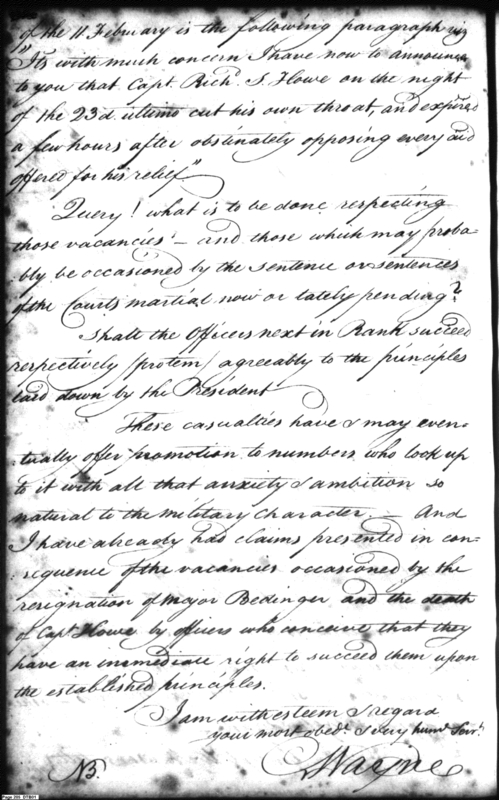 of the 11 February is the following paragraph viz
"Its with much concern I have now to announce
to you that Capt. Richd. S. Howe on the night
of the 23d. ultimo cut his own throat, and expired
a few hours after obstinately opposing every aid
offered for his relief"
Query! what is to be done respecting
those vacancies! — and those which may proba-
bly be occasioned by the sentence or sentences
of the Courts martial now or lately pending?
shall the Officers next in Rank succeed
respectively (protem) agreeably to the principles
laid down by the President
These casualties have & may even-
tually offer promotion to numbers who look up
to it with all that anxiety & ambition so
natural to the Military Character. — And
I have already had claims presented in con-
sequence of the vacancies occasioned by the
resignation of Major Bedinger and the death
of Capt. Howe by officers who conceive that they
have an immediate right to succeed them upon
the established principles.
I am with esteem & regard
your most obedt. & very huml. Servt.
NB. Wayne
Page 200 D7B01